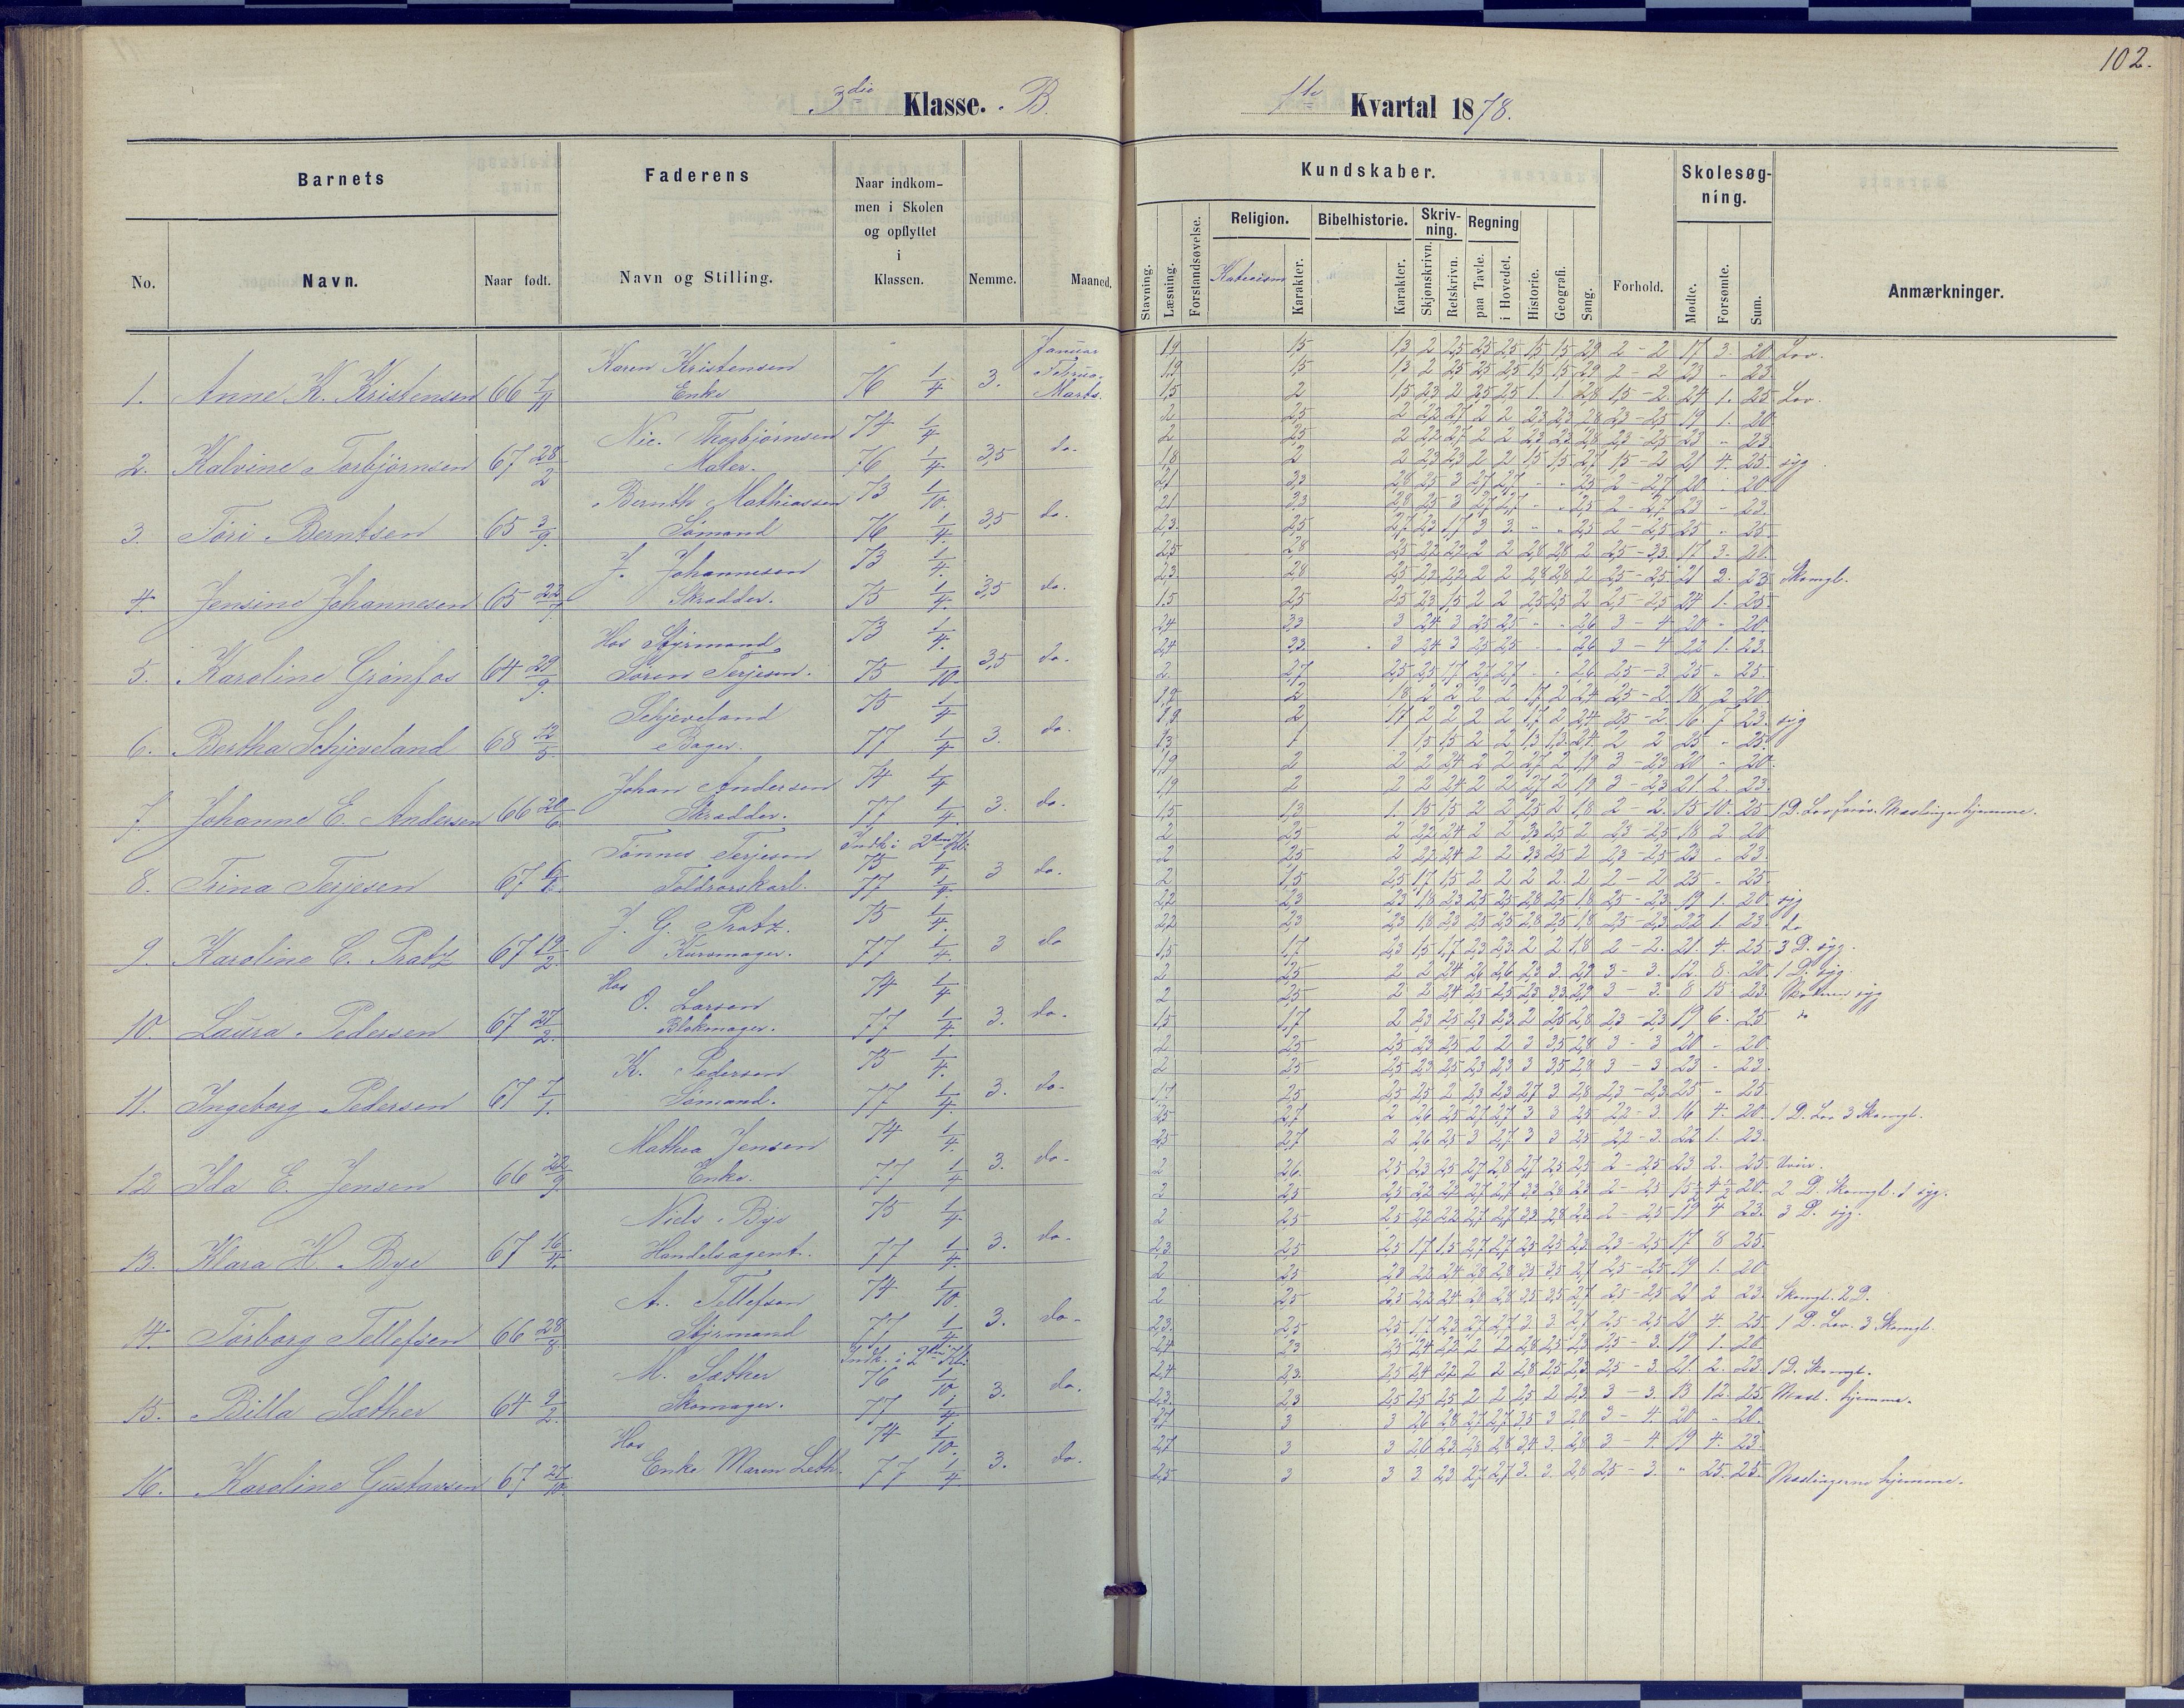 102.
3die Klasse. B.
1ste Kvartal 1878.
Barnets
Faderens
Naar indkom-
men i Skolen
og opflyttet
i
Klassen.
Nemme.
Maaned.
No.
Navn.
Naar født.
Navn og Stilling.
Kundskaber.
Stavning.
Læsning.
Forstandsøvelse.
Religion.
Katecism
Karakter.
Bibelhistorie.
Karakter.
Skriv-
ning.
Skjønskrivn.
Retskrivn.
Regning
paa Tavle.
i Hovedet.
Historie.
Geografi.
Sang.
Forhold.
Skolesøg-
ning.
Mødte.
Forsømte.
Sum.
Anmærkninger.
1. Anne K. Kristensen 66 7/11 Karen Kristensen Enke 76 1/4 3. Januar Februa. Marts.
2. Kalvine Torbjørnsen 67 28/2 Nic. Thorbjørnsen Maler. 74 1/4 76 1/4 3,5 do.
3. Tøri Berntsen 65 3/9. Bernth Mathiassen Sømand 73 1/10. 76 1/4. 3,5 do.
4. Jensine Johannesen 65 22/7. J. Johannesen Skrædder. 73 1/4. 75 1/4. 3,5 do.
5. Karoline Grønfos 64 29/9. Hos Styrmand Søren Terjesen. 73 1/4. 75 1/10. 3,5 do.
6. Bertha Schjeveland 68 12/5. Schjeveland Bager. 75 1/4 77 1/4 3. do.
7. Johanne E. Andersen 66 20/6. Johan Andersen Skrædder. 74 1/4 77 1/4 3. do.
8. Trina Terjesen 67 Tønnes Terjesen Toldrorskarl. Indk. i 2den Kl. 75 1/4 77 1/4. 3 do.
9. Karoline C. Pratz 67 19/2. J. G. Pratz. 75 1/4. 77 1/4. 3 do
10. Laura Pedersen 67 27/2. Hos O. Larsen Blokmager. 74 1/4 77 1/4 3. do.
11. Ingeborg Pedersen 67 7/1. K. Pedersen Sømand. 75 1/4. 77 1/4. 3. do.
12 Ida E. Jensen 66 22/9. Mathea Jensen Enke. 74 1/4. 77 1/4 3. do.
13. Klara H. Bye 67 16/4. Niels Bye Handelsagent. 75 1/4. 77 1/4 3. do.
14. Torborg Tellefsen 66 28/8. A. Tellefsen Styrmand 74 1/10. 77 1/4 3. do.
15. Billa Sæther 64 9/2. M. Sæther Skomager. Indk. i 2den Kl. 76 1/10. 77 1/4. 3. do.
16. Karoline Gustavsen 67 27/10. Hos Enke Maren Leth. 74 1/10. 77 1/4. 3. do.
1,9 1,5 1,3 2 2,5 2,5 2,5 1,5 1,5 2,9 2 - 2 17 3. 20. Lov.
1,9 1,5 1,3 2 2,5 2,5 2,5 1,5 1,5 2,9 2 - 2 23 " 23.
1,5 2 1,5 2,3 2 2,5 2,5 1 1 2,8 1,5 - 2. 24 1. 25. Lov.
2 2,5 2 2,2 2,7 2 2 2,3 2,3 2,8 2,3 - 2,5 19 1. 20.
2 2,5 2 2,2 2,7 2 2 2,3 2,3 2,8 2,3 - 2,5 23 " 23.
1,8 2 2 2,3 2,3 2 2 1,5 1,5 2,7 1,5 - 2 21 4. 25. syg
2,1 3,3 2,8 2,5 3 2,7 2,7 " " 2,5 2 - 2,7 20 " 20.
2,1 3,3 2,8 2,5 3 2,7 2,7 " " 2,5 2 - 2,7 23 " 23.
2,3. 2,5 2,7 2,3 1,7 3 3. " " 2,5 2 - 2,5 25 " 25.
2,5 2,8 2,5 2,2 2,2 2 2 2,8 2,8 2 2,5 - 3,3. 17 3. 20.
2,3. 2,8 2,5 2,2 2,2 2 2 2,8 2,8 2 2,5 - 2,5 21 2. 23. Skomgl.
1,5 2,5 2,5 2,3 1,5 2 2 2,5 2,5 2 2,5 - 2,5 24 1. 25.
2,4 3,3 3 2,4 3 2,5 2,5 " " 2,6 3 - 4 20 " 20.
2,4 3,3. 3 2,4 3 2,5 2,5 " " 2,6 3 - 4 22 1. 23.
2 2,7 2,5 2,5 1,7 2,7 2,7 " " 2,6 2,5 - 3. 25 " 25.
2 1,8 2 2 2 2 1,7 2 2,4 2,5 - 2. 18 2 20.
2 1,7 2 2 2 2 1,7 2 2,4 2,5 - 2. 16 7 23. syg
1,3 1 1 1,5 1,5 2 2 1,3 1,3 2,4 2 2 25 " 25.
1,9 2 2 2 2,4 2 2 2,7 2 1,9 3 - 2,3 20 " 20.
1,9 2 2 2 2,4 2 2 2,7 2 1,9 3 - 2,3 21. 2. 23.
1,5 1,3 1. 1,5 1,5 2 2 2,5 2 1,8 2 - 2. 15 10. 25. Mæslinger hjemme.
2 2,5 2 2,2 2,4 2 2 3,3 2,5 2 2,3 - 2,5 18 2 20
2 2,5 2 2,2 2,4 2 2 3,3 2,5 2 2,3 - 2,5 23 " 23.
2 1,5 2,5 1,7 1,5 2 2 2 2. 2 2 - 2 25 " 25
2,2 2,3 2,3 1,8 2,3 2,5 2,5 2,8 2,5 1,8 2,5 - 2,3. 19 1. 20. syg
2,2 2,3 2,3 1,8 2,3 2,5 2,5 2,8 2,5 1,8 2,5 - 2,3 22 1. 23. do
1,5 1,7 2,3 1,5 1,7 2,3 2,3. 2 2. 1,8 2 - 2. 21. 4. 25 3 D. syg.
2 2,5 2 2 2,4 2,6 2,6 2,3 3. 2,9 3 - 3. 12. 8. 20. 1 D. syg.
2 2,5 2 2 2,4 2,5 2,5 2,3 3,3 2,9 3 - 3. 8 15. 23. Moderen syg
1,5 1,7 2 2,3 2,5 2,3 2,3 2 2,5 2,8 2,3 - 2,3 19 6. 25 do
2 2,5 2,5 2,3 2,5 2 2 3 3,5 2,8 3 - 3 20 " 20.
2 2,5 2,5 2,3 2,5 2,3 2,3 3 3,5 2,8 3 - 3 23 " 23.
1,7 2,5 2,5 2,5 2 2,3 2,3 2,7 3 2,8 2,3 - 2,3 25 " 25.
2,5 2,7 2 2,6 2,5 2,7 2,7 3 3 2,5 2,2 - 3. 16 4. 20. 1 D. Lov 3 Skomgl.
2,5 2,7 2 2,6 2,5 3 2,7 3 3 2,5 2,2 - 3. 22 1. 23.
2 2,6. 2,5 2,3 2,5 2,7 2,8 2,7 2,5 2,5 2 - 2,5 23 2. 25. Uveir.
2 2,5 2,5 2,2 2,2 2,7 2,7 3,3 2,8 2,3 2 - 2,5 15 1/2 4 1/2 20. 2 D. Skomgl. 1 syg.
2 2,5 2,5 2,2 2,2 2,7 2,7 3,3 2,8 2,3 2 - 2,5 19 4 23. 3 D. syg.
2,3 2,5 2,5 1,7 1,5 2,7 2,7 2,5 2,5 2,3. 2,3 - 2,5 17 8 25.
2 2,5 2,8 2,2 2,4 2,8 2,8 3,5 3,5 2,7 2,5 - 2,5 19 1. 20.
2 2,5 2,5 2,2 2,4 2,8 2,8 3,5 3,5 2,7 2,5 - 2,5 21 2 23. Skomgl. 2 D.
2,3. 2,5 2,5 1,7 2,3 2,7 2,7 3. 3 2,7 2,5 - 2,5 21 4. 25. 1 D. Lov. 3 Skomgl.
2,4 2,3 2,5 2,4 2,2 2 2 2,8 2,5 2,3 2,5 - 3. 19 1. 20.
2,4 2,3. 2,5 2,4 2,2 2 2 2,8 2,5 2,3. 2,5 - 3. 21. 2. 23. 1 D. Skomgl.
2,3. 2,3 2,5 2,5 2,5 2 2 2,5 2 2,3. 3 - 3. 13 12. 25. Mæsl. hjemme.
2,7 3 3 2,6 2,8 2,7 2,7 3,5 3 2,8 3 - 4. 20 " 20.
2,7 3 3 2,6 2,3 2,8 2,8 3,4 3. 2,8 3 - 4. 19 4. 23.
2,5 3 3 3 2,3 2,7 2,7 3. 3. 2,8 2,5 - 3. " 25. 25. Mæslingerne hjemme.